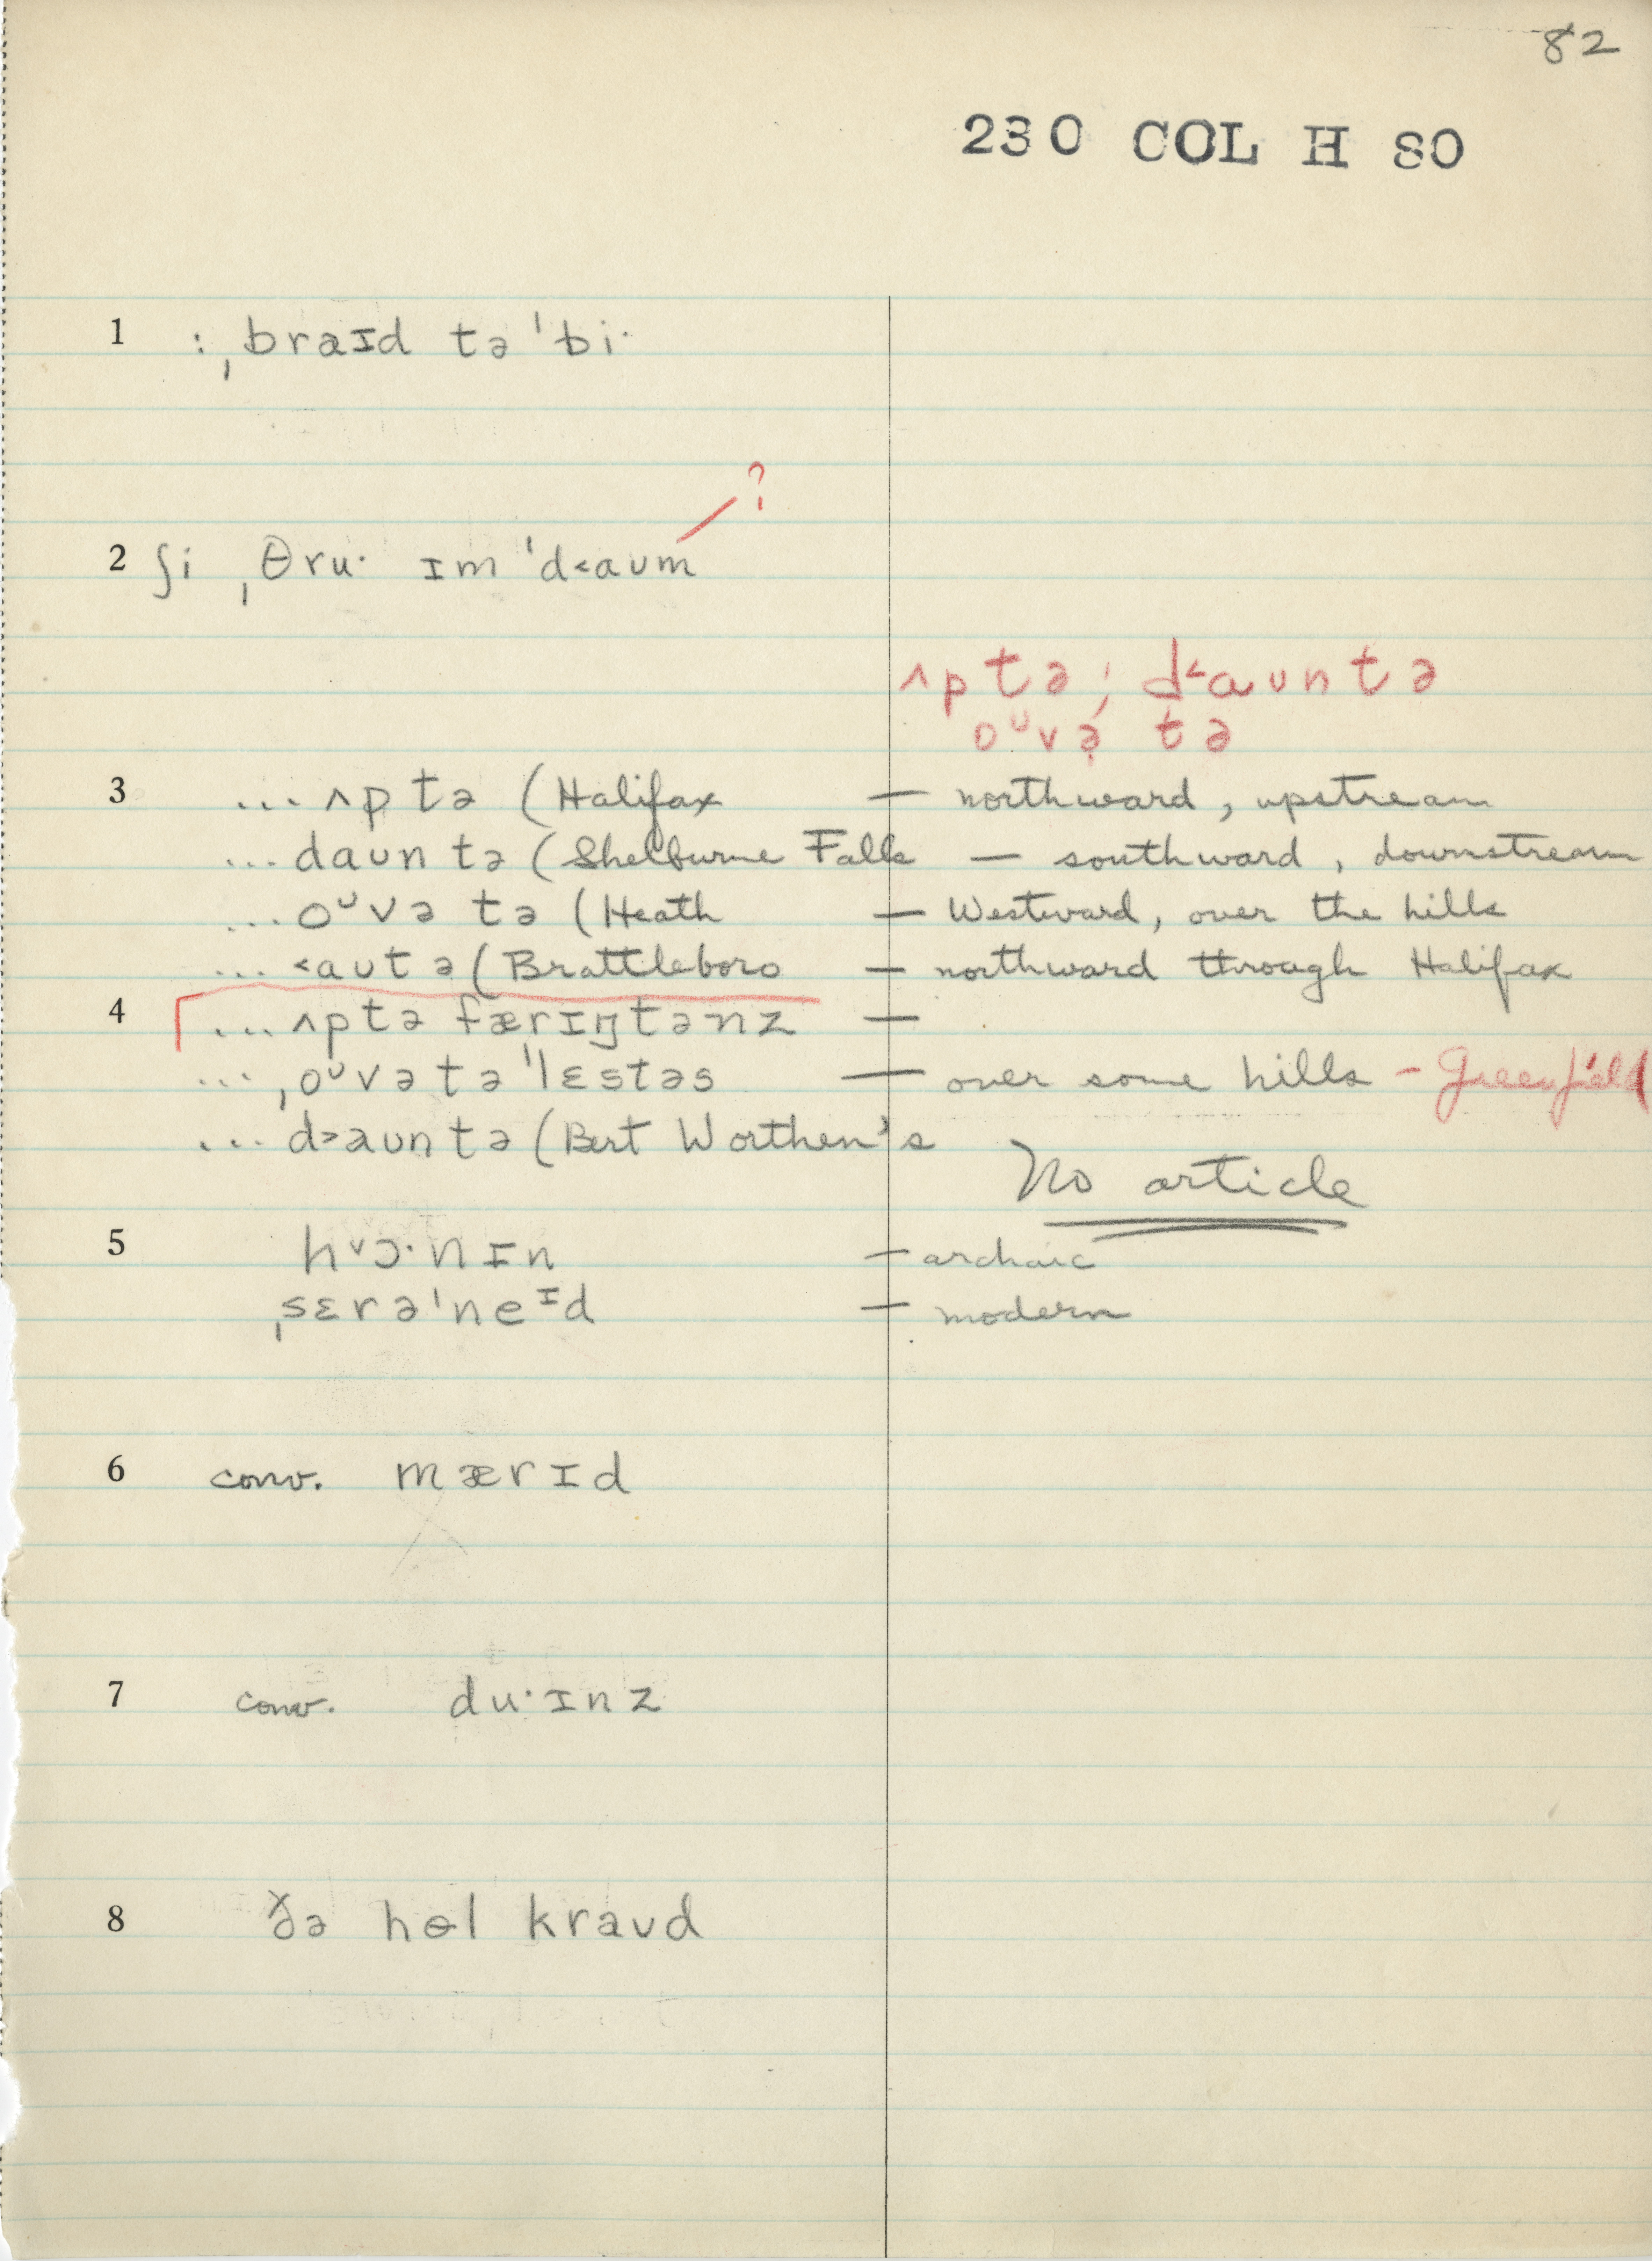 82
230 COL H 80
1 : ˌbraɪd tə ˈbi·
?
2 ʃi ˌθru· ɪm ˈd˂aʊm
ʌp tə ; d˂aʊn tə
oᶷvə̣ tə
3 ... ʌp tə (Halifax — northward, upstream
... daʊn tə (Shelburne Falls — southward, downstream
... oᶷvə tə (Heath — Westward, over the hills
... ˂aʊt ə (Brattleboro — northward through Halifax
4 ... ʌp tə færɪŋtənz —
... ˌoᶷvə tə ˈlɛstəs — over some hills - Greenfield
... d˃aʊn tə (Bert Worthen's
No article
5 h˅ɔ·nɪn — archaic
ˌsɛrəˈneᶦd — modern
6 conv. mærɪd
7 conv. du·ɪnz
8 ðə hɵl kraʊd